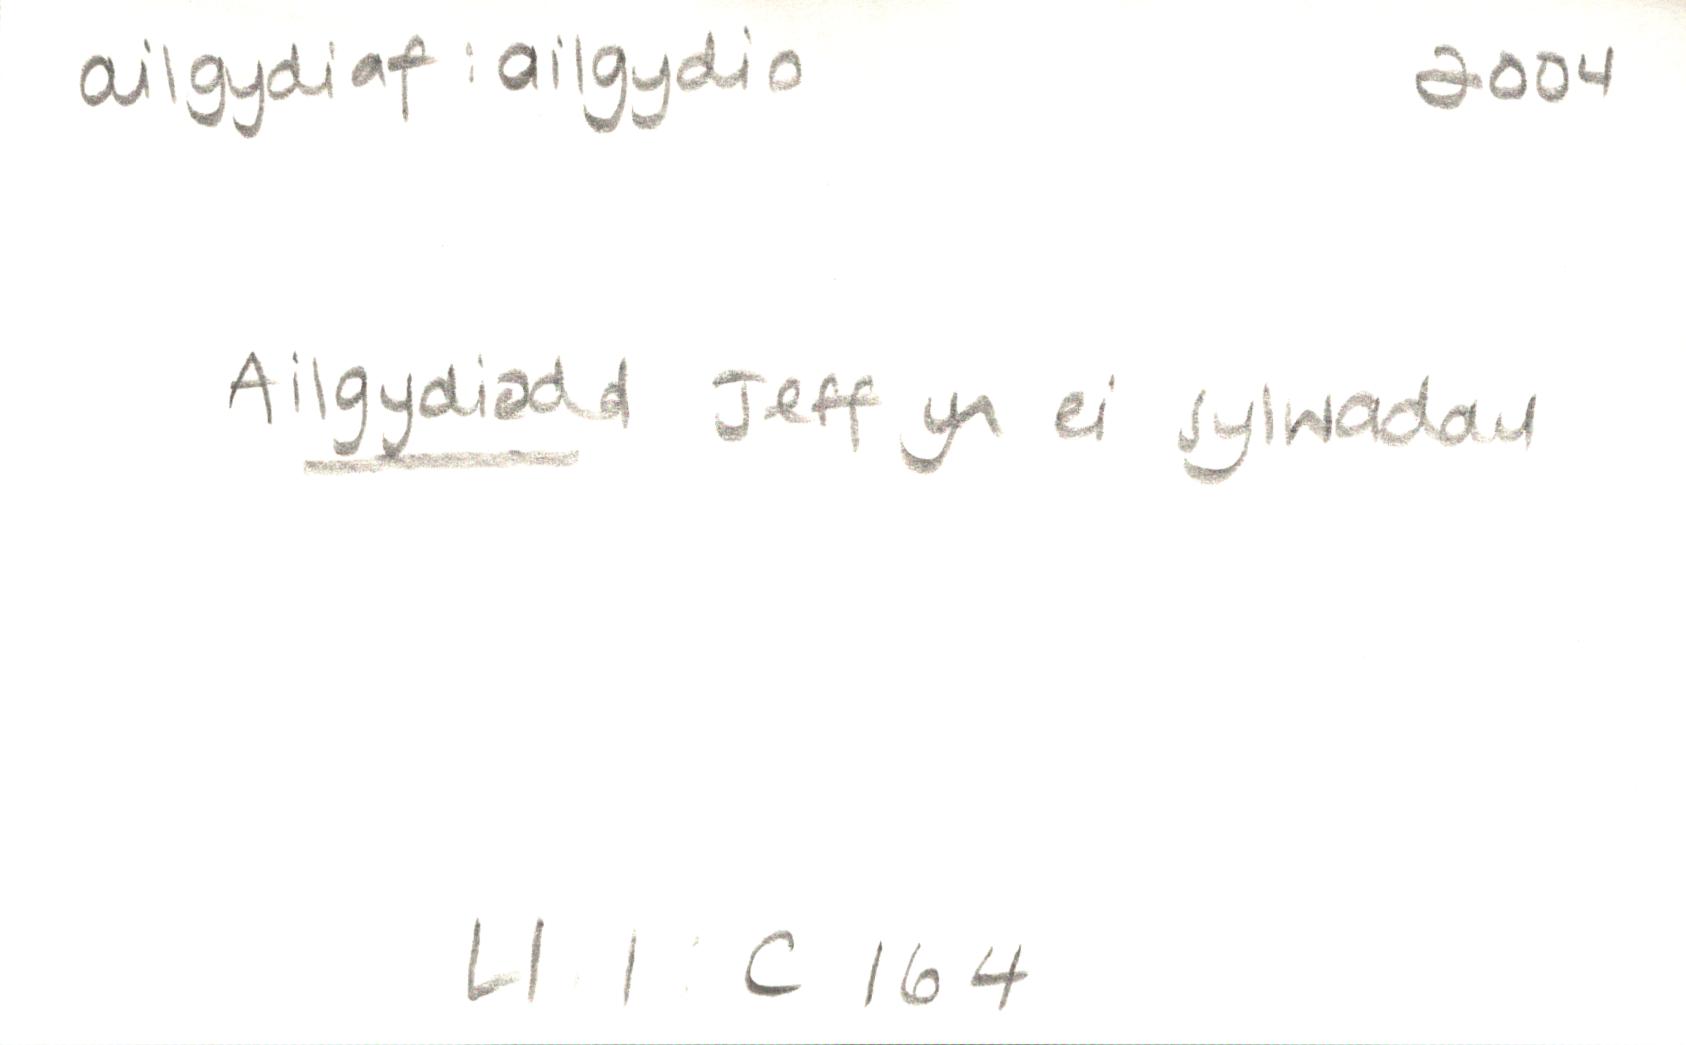 ailgydiaf : ailgydio 2004
Ailgydiodd Jeff yn ei sylwadau
Ll. 1 : C 164